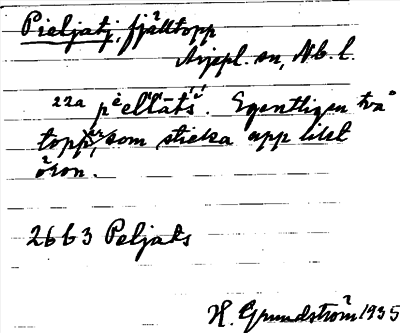 Pieljatj, fjälltopp
Arjepl. sn, Nb. l.
22a pėl'l'ats̆. Egentligen två
toppar, som sticka upp likt
öron.
2663 Peljats
H. Grundström 1935